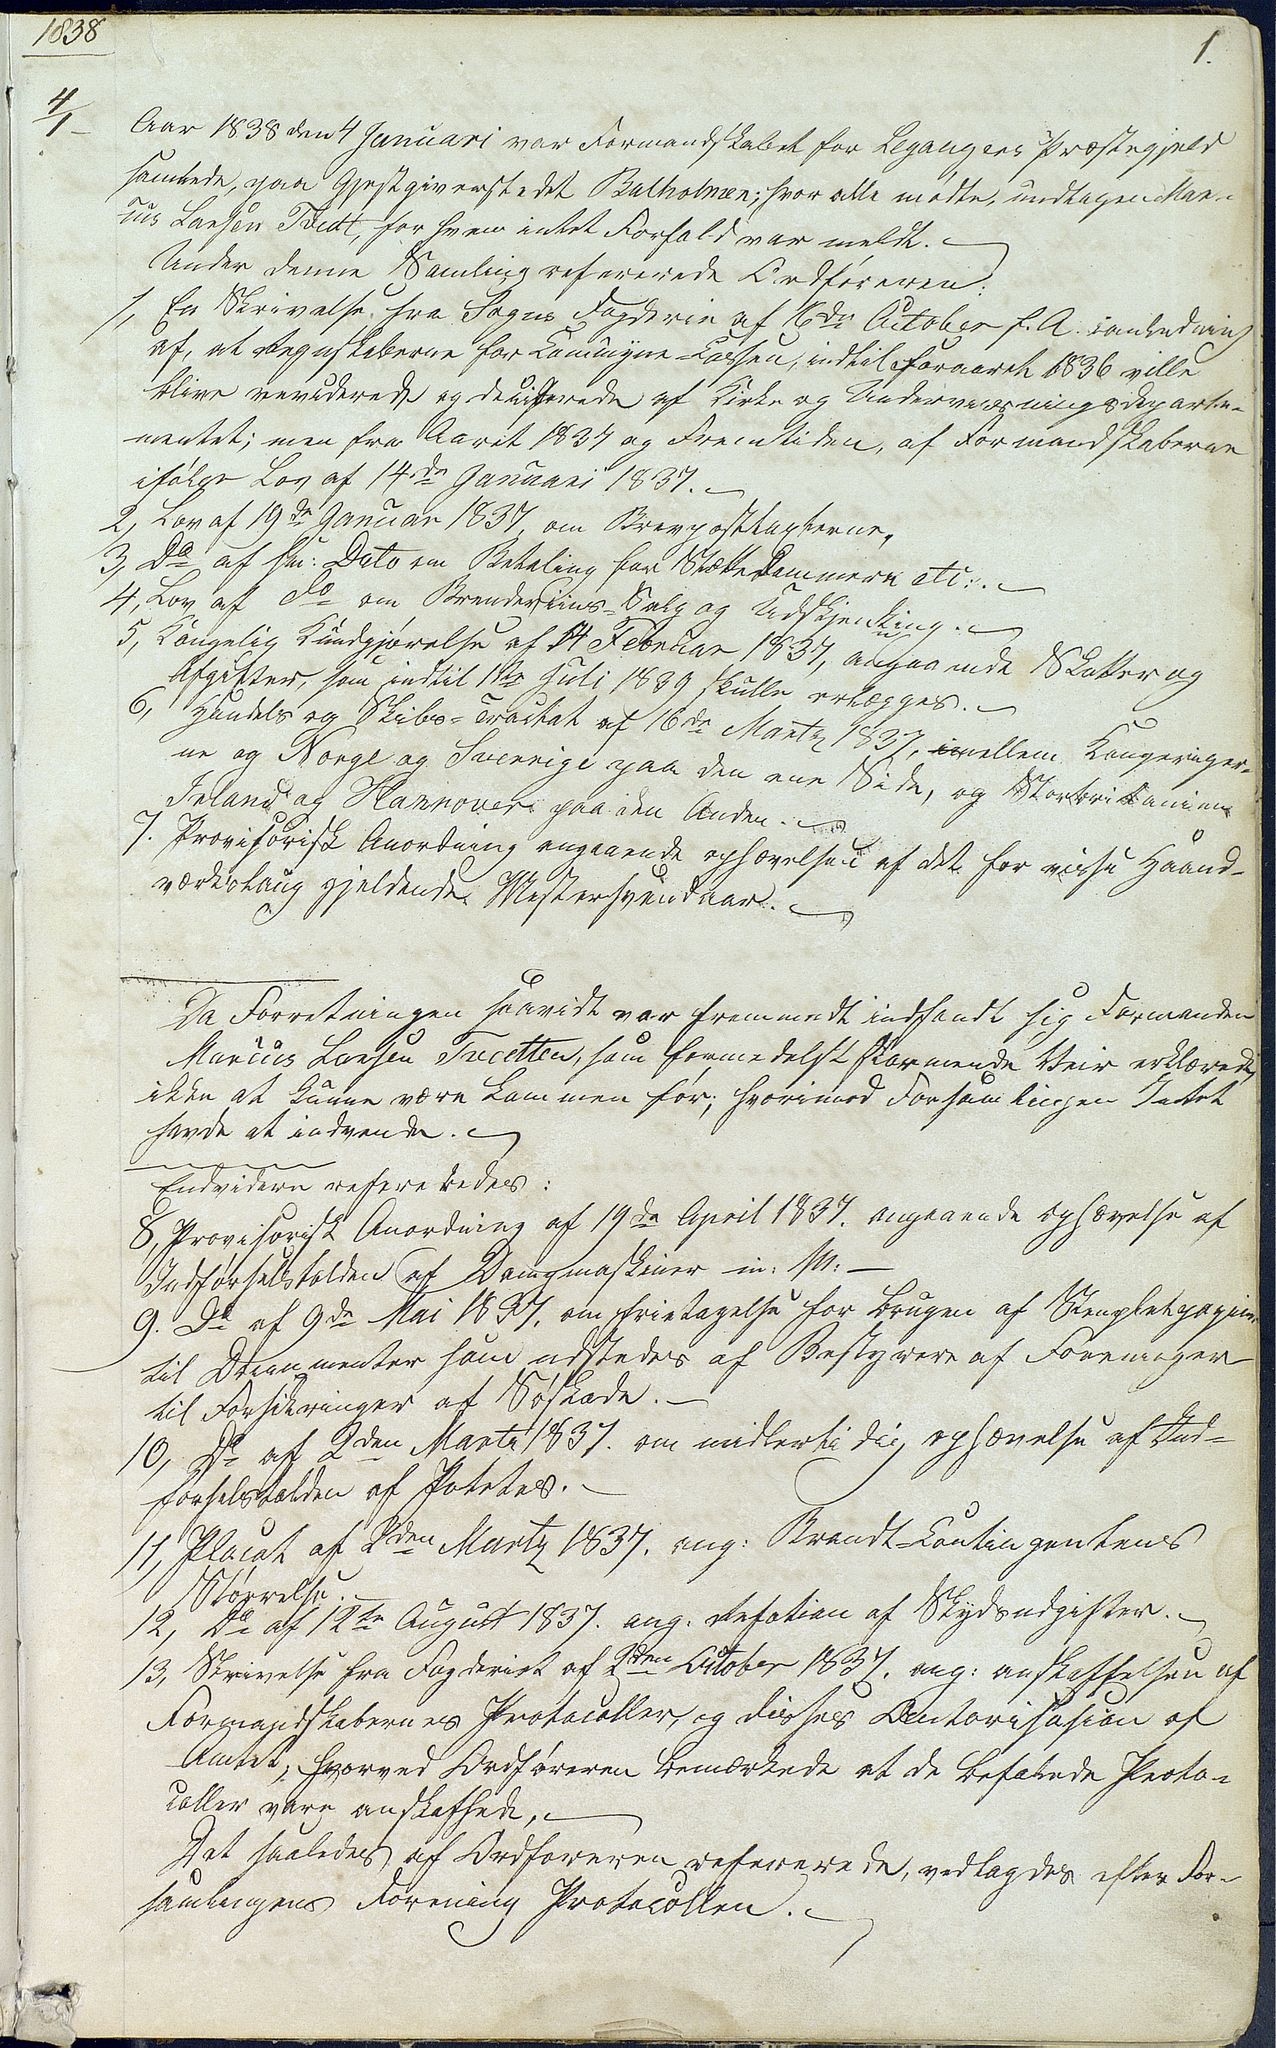 1838
1.
4/1 -
Aar 1838 den 4 Januari var Formandskabet for Leganger Præstegjeld
samlede, paa Gjestgiverstedet Balholmen; hvor alle mødte, undtagen Mar-
cus Larsen Tveit, for hvem intet Forfald var meldt.
Under denne Samling refererede Ordføreren:
1, En Skrivelse fra Sogns Fogderie af 16de October f. A. i anledning
af, at Regnskaberne for Commyne-Cassen, indtil Foraaret 1836 ville
blive reviderede og deciderede af Kirke og Underviisningsdeparte-
mentet; men fra Aaret 1837 og Fremtiden, af Formandskaberne
ifølge Lov af 14de Januari 1837.
2, Lov af 19de Januar 1837, om Brevposttaxterne,
3, Do af s. Dato om Betaling for Slette Kammere etc:.
4, Lov af do om Brendeviins-Salg og Udskjenkning.
5, Kongelig Kundgjørelse af 14 Februar 1837, angaaende Skatter og
Afgifter, som indtil 1ste Juli 1839 skulle erlægges.
6, Handels og Skibs-Tractat af 16de Martz 1837, imellem Kongeriger-
ne og Norge og Sverrige paa den ene Side, og Storbritanien
Irland og Hannover paa den Anden.
7. Provisorisk Anordning angaaende ophævelsen af det for visse Haand-
værkslaug gjeldende Mestersvendaar.
Da Forretningen saavidt var fremmedt indfandt sig Formanden
Marcus Larsen Tveiten, som formedelst stormende Veir erklærede
ikke at kunne være kommen før; hvorimod Forsamlingen Intet
havde at indvende.
Endvidere refereredes:
8, Provisorisk Anordning af 19de April 1837. angaaende ophævelse af
Indførselstolden af Dampmaskiner m: M:
9. Do af 9de Mai 1837, om fritagelse for brugen af Stemplet papiir
til Documenter som udstedes af Bestyrere af Foreninger
til Forsikringer af Søskade.
10, Do af 2den Marts 1837. om midlertidig ophævelse af Ind-
førselstolden af Potetes.
11, Placat af 2den Martz 1837. ang: Brandt-Contingentens
Størrelse.
12, Do af 12te August 1837. ang. Refotion af Skydsudgifter.
13, Skrivelse fra Fogderiet af 2den October 1837. ang: anskaffelsen af
Formandskabernes Protocoller, og disses Autorisasion af
Amtet, hvorved Ordføreren bemærkede at de befalede Proto-
coller vare anskaffede.
Det saaledes af Ordføreren refererede, vedtagdes efter For-
samlingens Forening Protocollen.